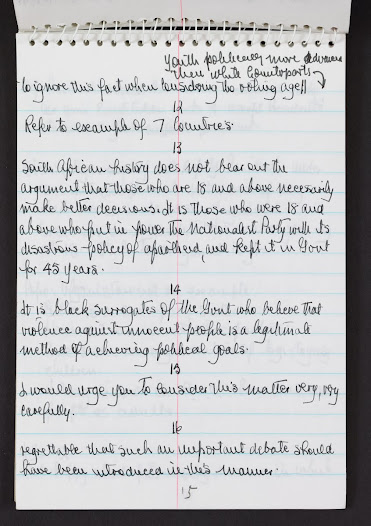 Youth politically more advanced
than white counterparts
to ignore this fact when considering the voting age
12
Refer to example of 7 countries.
13
South African history does not bear out the
argument that those who are 18 and above necessarily
make better decisions. It is those who were 18 and
above who put in power the Nationalist Party with its
disastrous policy of apartheid, and kept it in Govt
for 45 years.
14
It is black surrogates of the Govt who believe that
violence against innocent people is a legitimate
method of achieving political goals.
15
I would urge you to consider this matter very, very
carefully.
16
regrettable that such an important debate should
have been introduced in this manner.
15